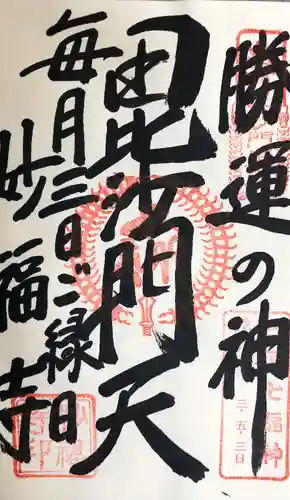 勝運の神
毘沙門天
毎月三日ご縁日
妙福寺
七福神
三・五・三日